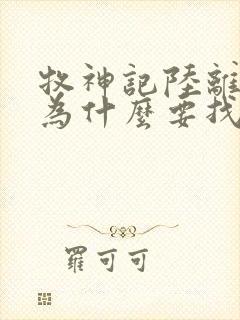 牧神記陸離
為什麼要找
羅可可